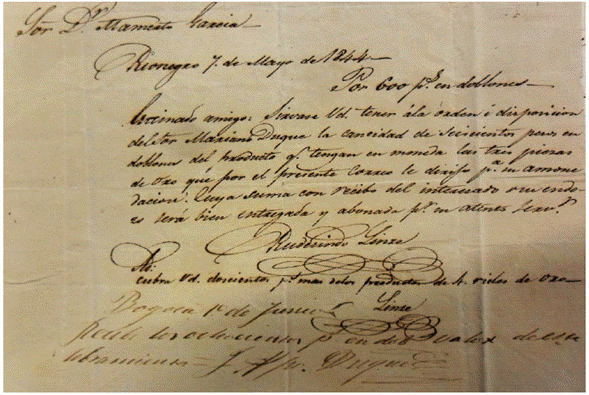 Sor. Dn. Mamerto Garcia
Rionegro 7. de Mayo de 1844
Por 600 ps. en doblones
Estimado amigo: Sirvase Ud. tener á la orden i disposicion
del Sor Mariano Duque la cantidad de Seiscientos pesos en
doblones del producto qe. tengan en moneda las tres piezas
de Oro que por el presente Correo le dirijo pa. su amone
dacion. Cuya suma con recibo del interesado o su endo
so será bien entregada y abonada pr. su atento Servr.
Ruderindo
cubra Ud. doscientos ps. mas delos productos de 4. de Oro
Bogotá 1o. de Junio
Recibi los ochocientos ps. en valor de este
libramiento Duque